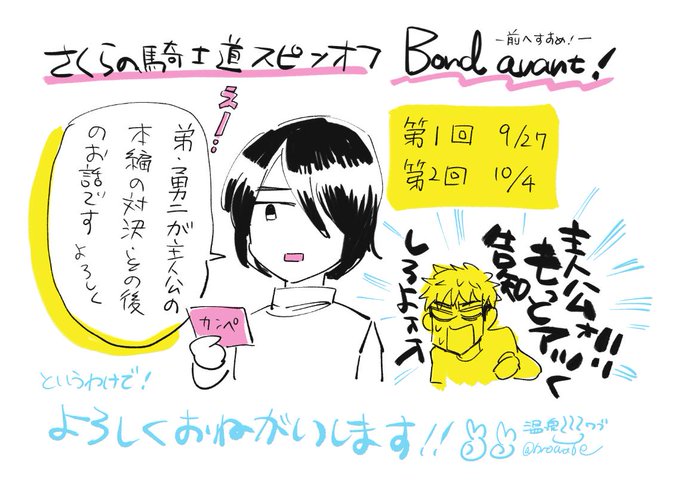 さくらの騎士道スピンオフ
Bond avant!
ー前へすすめ!ー
え〜!!
弟・勇二が主人公の
本編の対決・その後
のお話です
よろしく
カンペ
第1回 9/27
第2回 10/4
主人公ォ!!!
もっとアツく
告知
しろよォォ
というわけで!
よろしくおねがいします!!
温泉